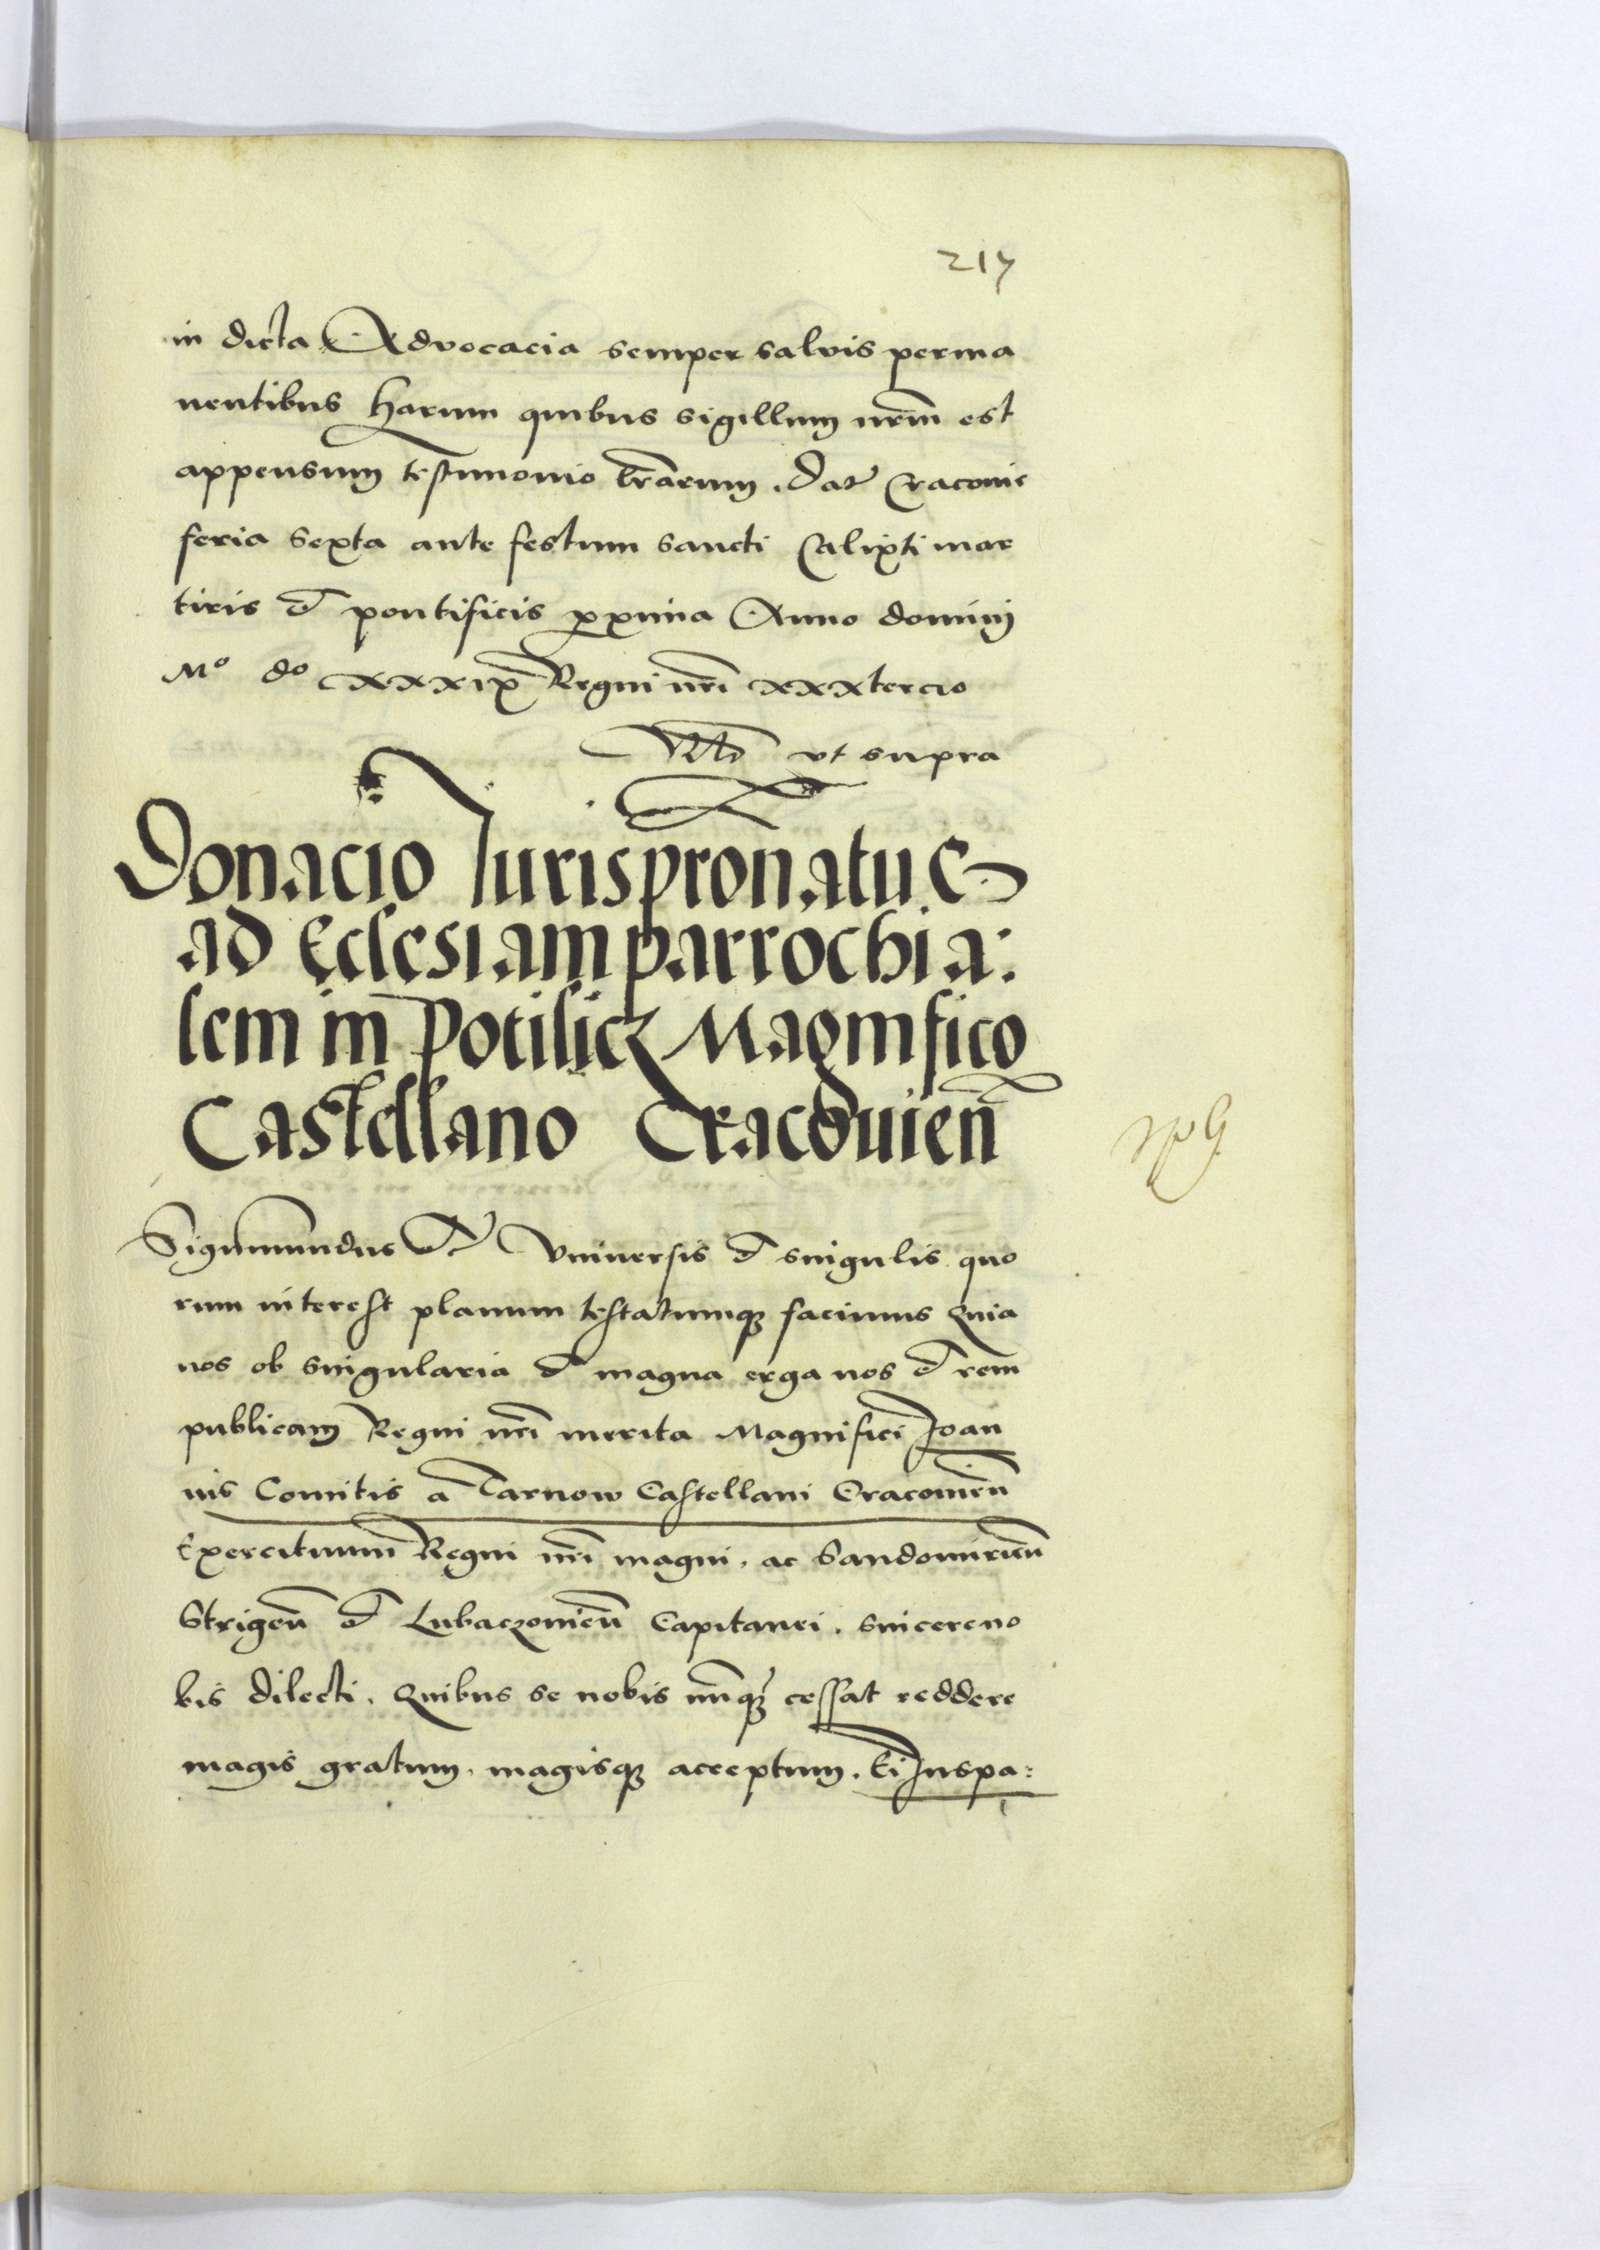 217
in dicta Advocacia semper salvis perma
nentibus Harum quibus sigillum nrm̄ est
appensum testimonio lrarum. Dat Cracovie
feria sexta ante festum sancti Calixti mar
tiris et pontificis proxima Anno domini
Mº dº xxxix Regni nrī xxxtercio
ut supra
Donacio Jurispronatus
ad Eclesiam parrochia:
lem in Potilicz Magnifico
Castellano Cracovien̄
Sigismundus etc Universis et singulis quo
rum interest planum testatumq; facimus Quia
nos ob singularia et magna erga nos et rem
publicam Regni nrī merita Magnifici Joan
nis Comitis a Tarnow Castellani Cracovien̄
Exercituum Regni nrī magni. ac Sandomirien̄
Strigen̄ et Lubaczovien̄ Capitanei. sincere no
bis dilecti. Quibus se nobis nunq; cessat reddere
magis gratum. magisq; acceptum. Ei Juspa: